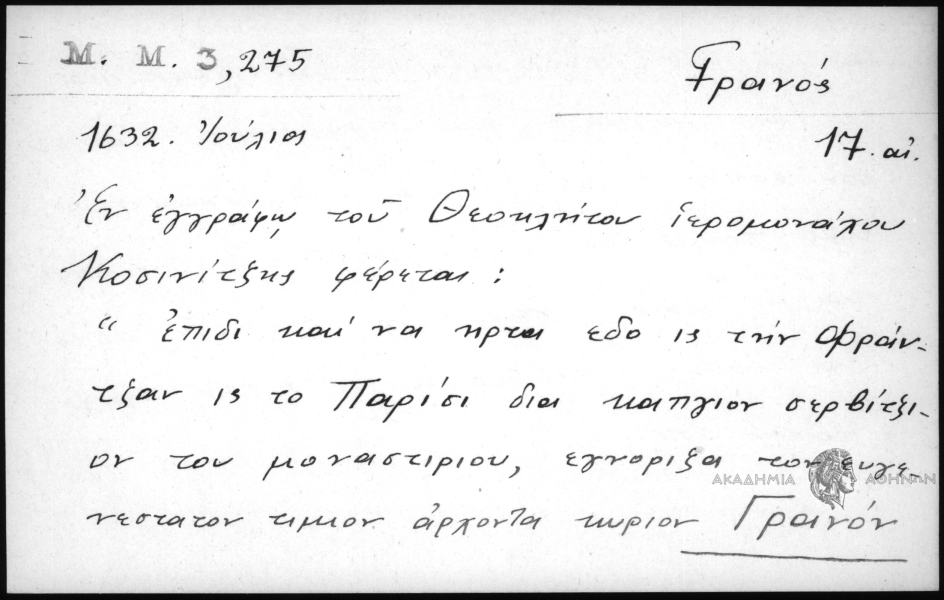 Μ. Μ. 3, 275
Γρανός
1632. Ἰούλιος
17. αἰ.
Ἐν ἐγγράφῳ τοῦ Θεοκλήτου ἱερομονάχου
Κοσινίτζης φέρεται:
“ ἐπιδι καί να ηρτα εδο ις τήν Φράν-
τζαν ις το Παρίσι δια καπγιον σερβίτζι-
ον του μοναστιριου, εγνοριξα τον ευγε-
νεστατον τιμιον ἀρχοντα κυριον Γρανόν
ΑΚΑΔΗΜΙΑ ΑΘΗΝΩΝ